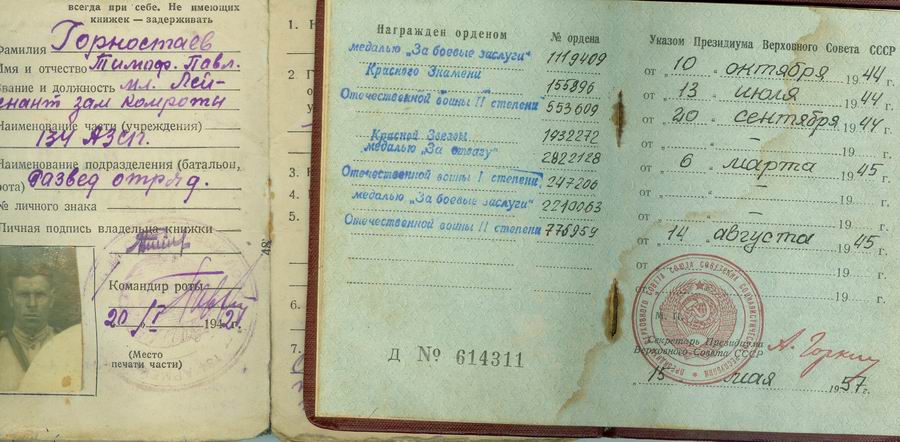 всегда при себе. Не имеющих
книжек — задерживать
Фамилия Горностаев
Имя и отчество Тимоф. Павл.
Звание и должность мл. Лей-
тенант зам комроты
Наименование части (учреждения)
134 АЗСП.
Наименование подразделения (батальон,
рота) развед отряд.
№ личного знака
Личная подпись владельца книжки
Командир роты
20 194 г.
(Место
печати части)
48
1.
2.
3.
4.
5.
6.
7.
Награжден орденом № ордена
медалью „За боевые заслуги" 1119409
Красного Знамени 155896
Отечественной войны II степени 553609
Красной Звезды 1932272
медалью „За отвагу" 2822128
Отечественной войны I степени 247206
медалью „За боевые заслуги" 2210063
Отечественной войны II степени 776959
Д № 614311
Указом Президиума Верховного Совета СССР
от „10" октября 1944 г.
от „13" июля 1944 г.
от „20" сентября 1944 г.
от „ " – 19 г.
от „6" марта 1945 г.
от „ " – 19 г.
от „ " – 19 г.
от „14" августа 1945 г.
от „ " 19 г.
от „ " 19 г.
М. П.
Секретарь Президиума
Верховного Совета СССР
А. Горкин
„15" мая 1957 г.